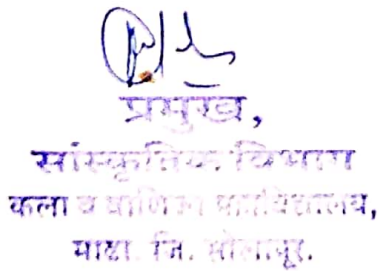 प्रमुख,
सांस्कृतिक विभाग
कला व वाणिज्य महाविद्यालय,
माढा जि. सोलापूर.